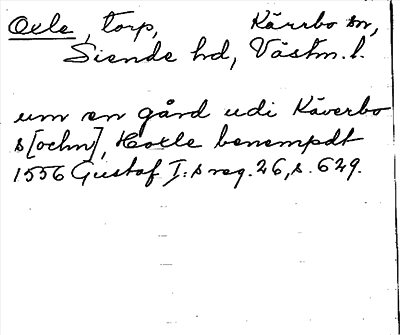 Oxle, torp, Kärrbo sn,
Siende hd, Västm. l.
um en gård udi Käverbo
s[ochn], Hoxle benempdt
1556 Gustaf I:s reg. 26, s. 629.